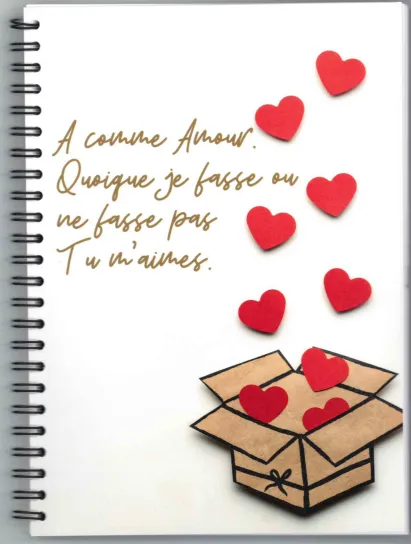 A comme Amour.
Quoique je fasse ou
ne fasse pas
Tu m'aimes.